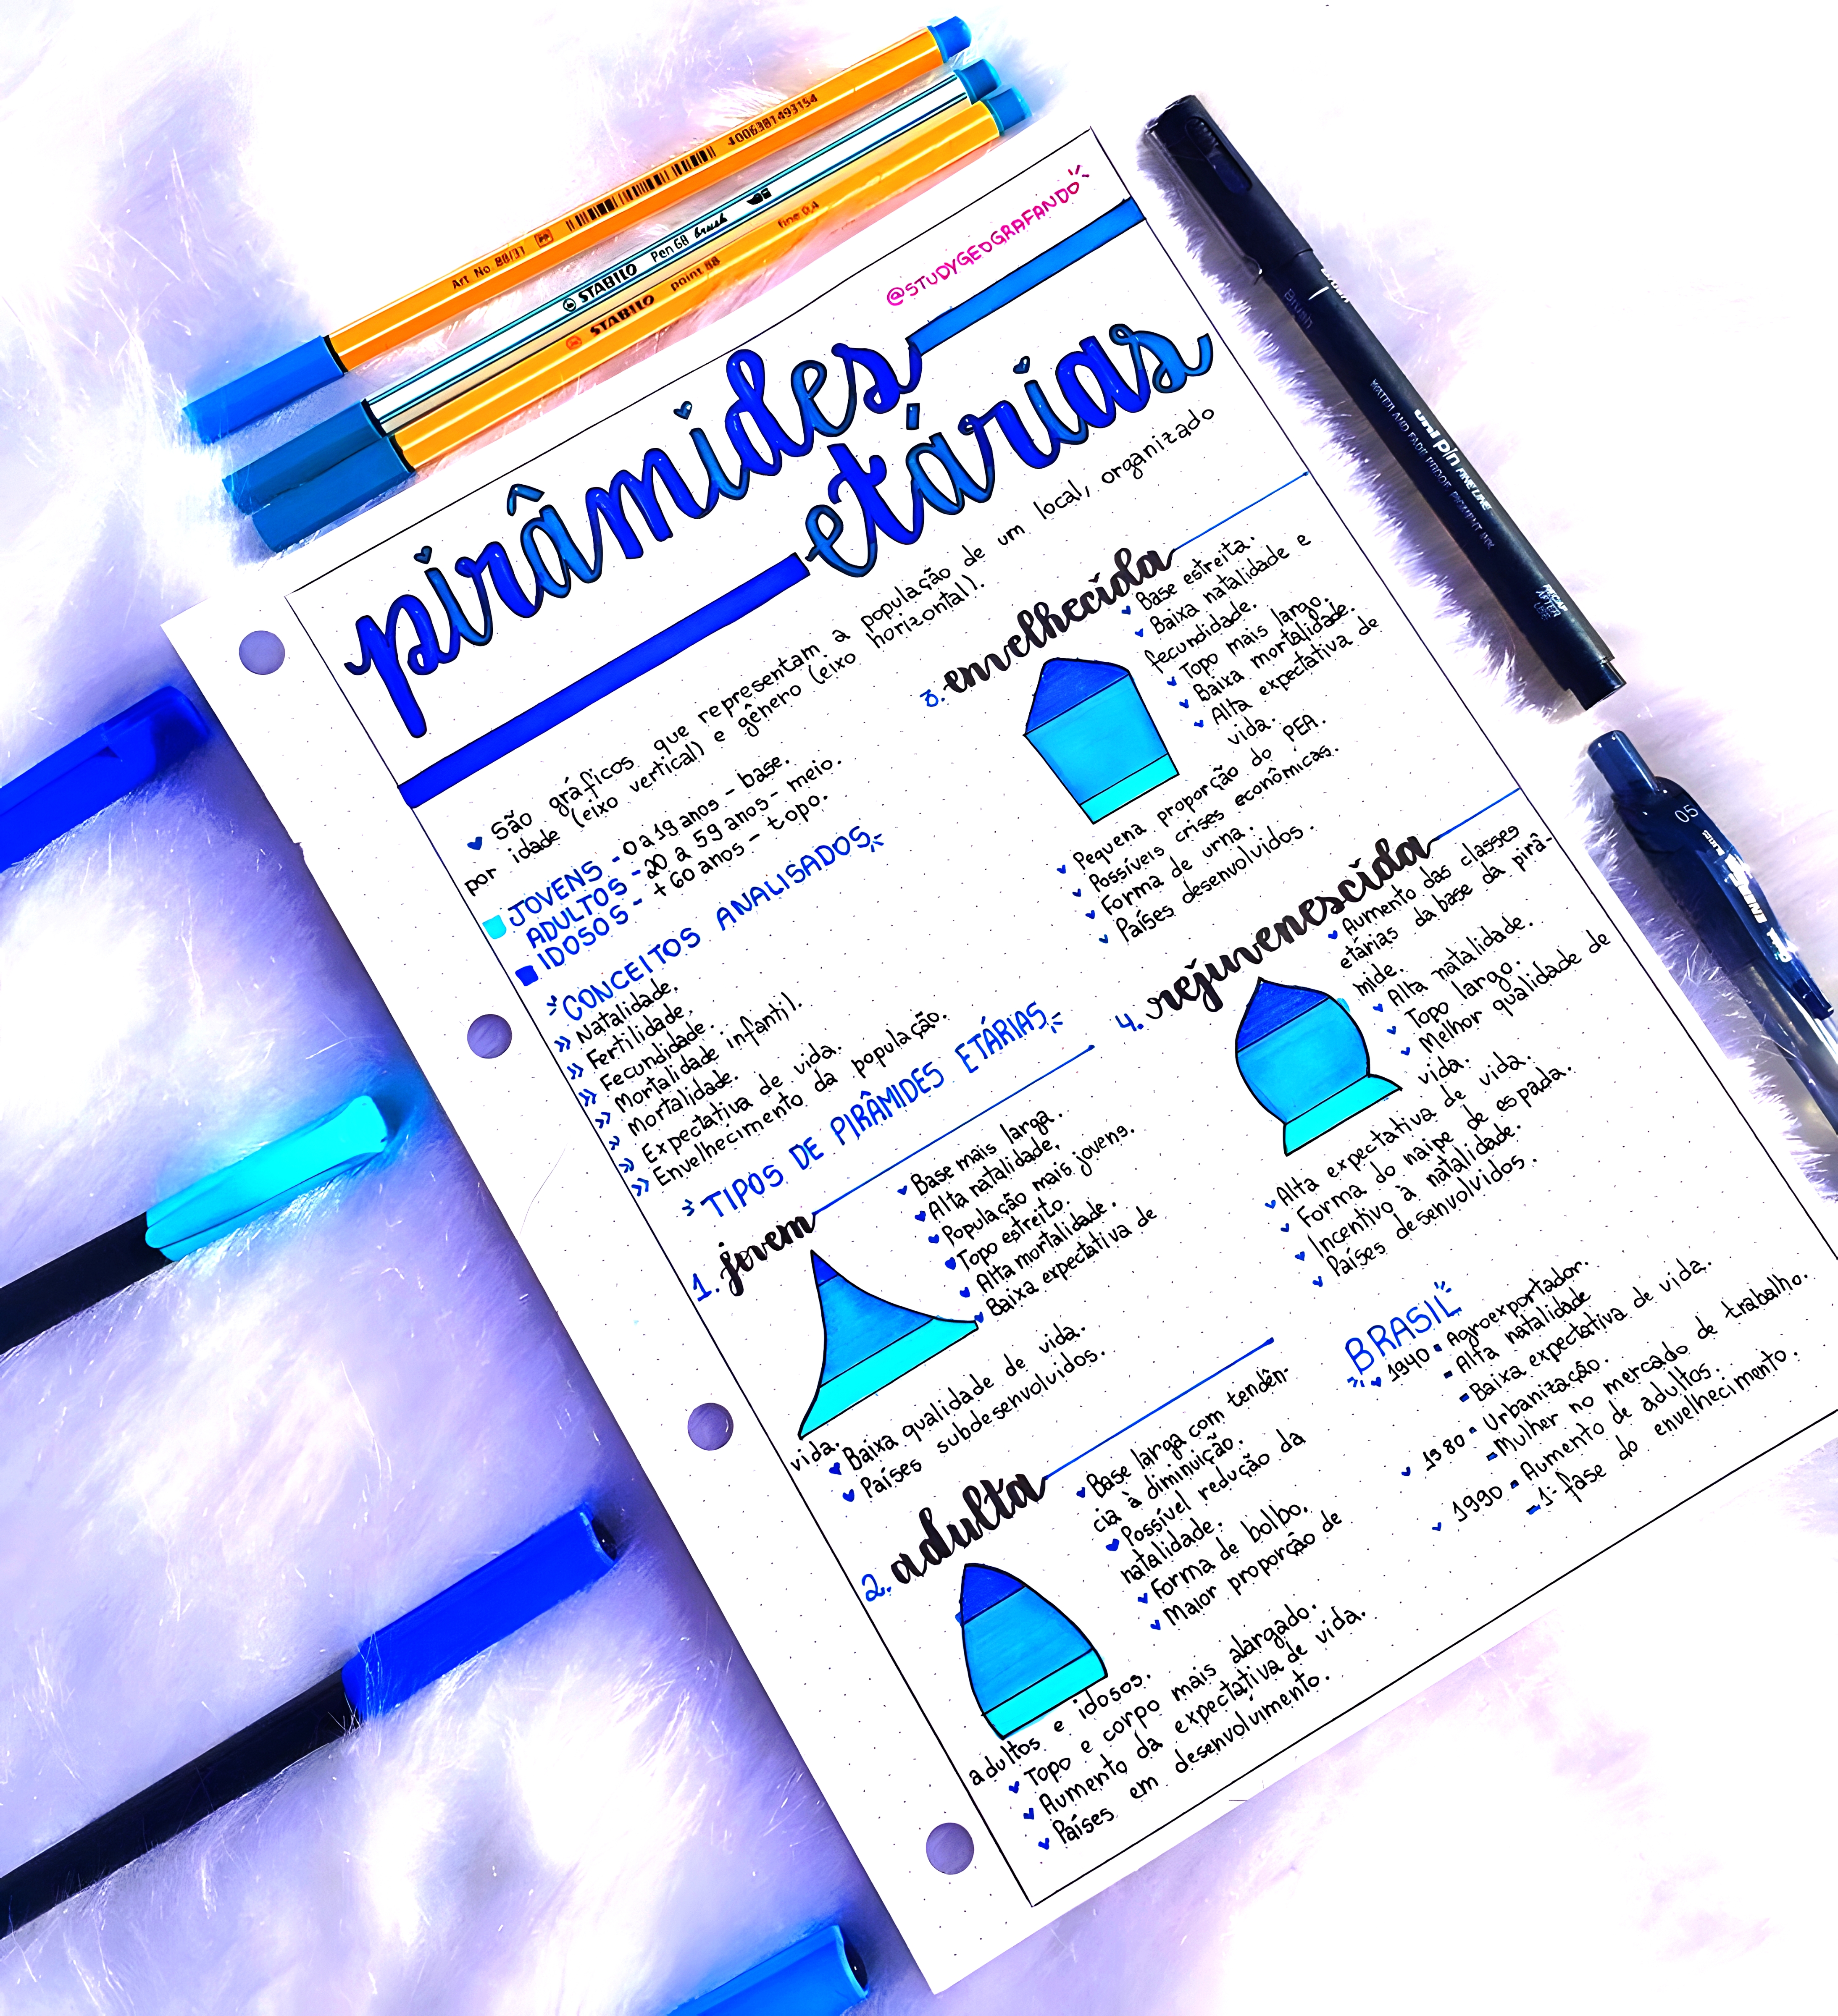 Art No 88/31 4006381493154
STABILO Pen 68 brush
STABILO point 88 fine 0,4
@STUDYGEOGRAFANDO
pirâmides
etárias
São gráficos que representam a população de um local, organizado
por idade (eixo vertical) e gênero (eixo horizontal).
JOVENS - 0 a 19 anos - base.
ADULTOS - 20 a 59 anos - meio.
IDOSOS - + 60 anos - topo.
CONCEITOS ANALISADOS
>> Natalidade.
>> Fertilidade.
>> Fecundidade.
>> Mortalidade infantil.
>> Mortalidade.
>> Expectativa de vida.
>> Envelhecimento da população.
TIPOS DE PIRÂMIDES ETÁRIAS
1. jovem
Base mais larga.
Alta natalidade.
População mais jovens.
Topo estreito.
Alta mortalidade.
Baixa expectativa de
vida.
Baixa qualidade de vida.
Países subdesenvolvidos.
2. adulta
Base larga com tendên-
cia à diminuição.
Possível redução da
natalidade.
Forma de bolbo.
Maior proporção de
adultos e idosos.
Topo e corpo mais alargado.
Aumento da expectativa de vida.
Países em desenvolvimento.
3. envelhecida
Base estreita.
Baixa natalidade e
fecundidade.
Topo mais largo.
Baixa mortalidade.
Alta expectativa de
vida.
Pequena proporção do PEA.
Possíveis crises econômicas.
Forma de urna.
Países desenvolvidos.
4. rejuvenescida
Aumento das classes
etárias da base da pirâ-
mide.
Alta natalidade.
Topo largo.
Melhor qualidade de
vida.
Alta expectativa de vida.
Forma do naipe de espada.
Incentivo à natalidade.
Países desenvolvidos.
BRASIL
1940 - Agroexportador.
- Alta natalidade
- Baixa expectativa de vida.
1980 - Urbanização.
- Mulher no mercado de trabalho.
1990 - Aumento de adultos.
- 1ª fase do envelhecimento.
Brush
uni pin FINE LINE
WATER AND FADE PROOF PIGMENT INK
05